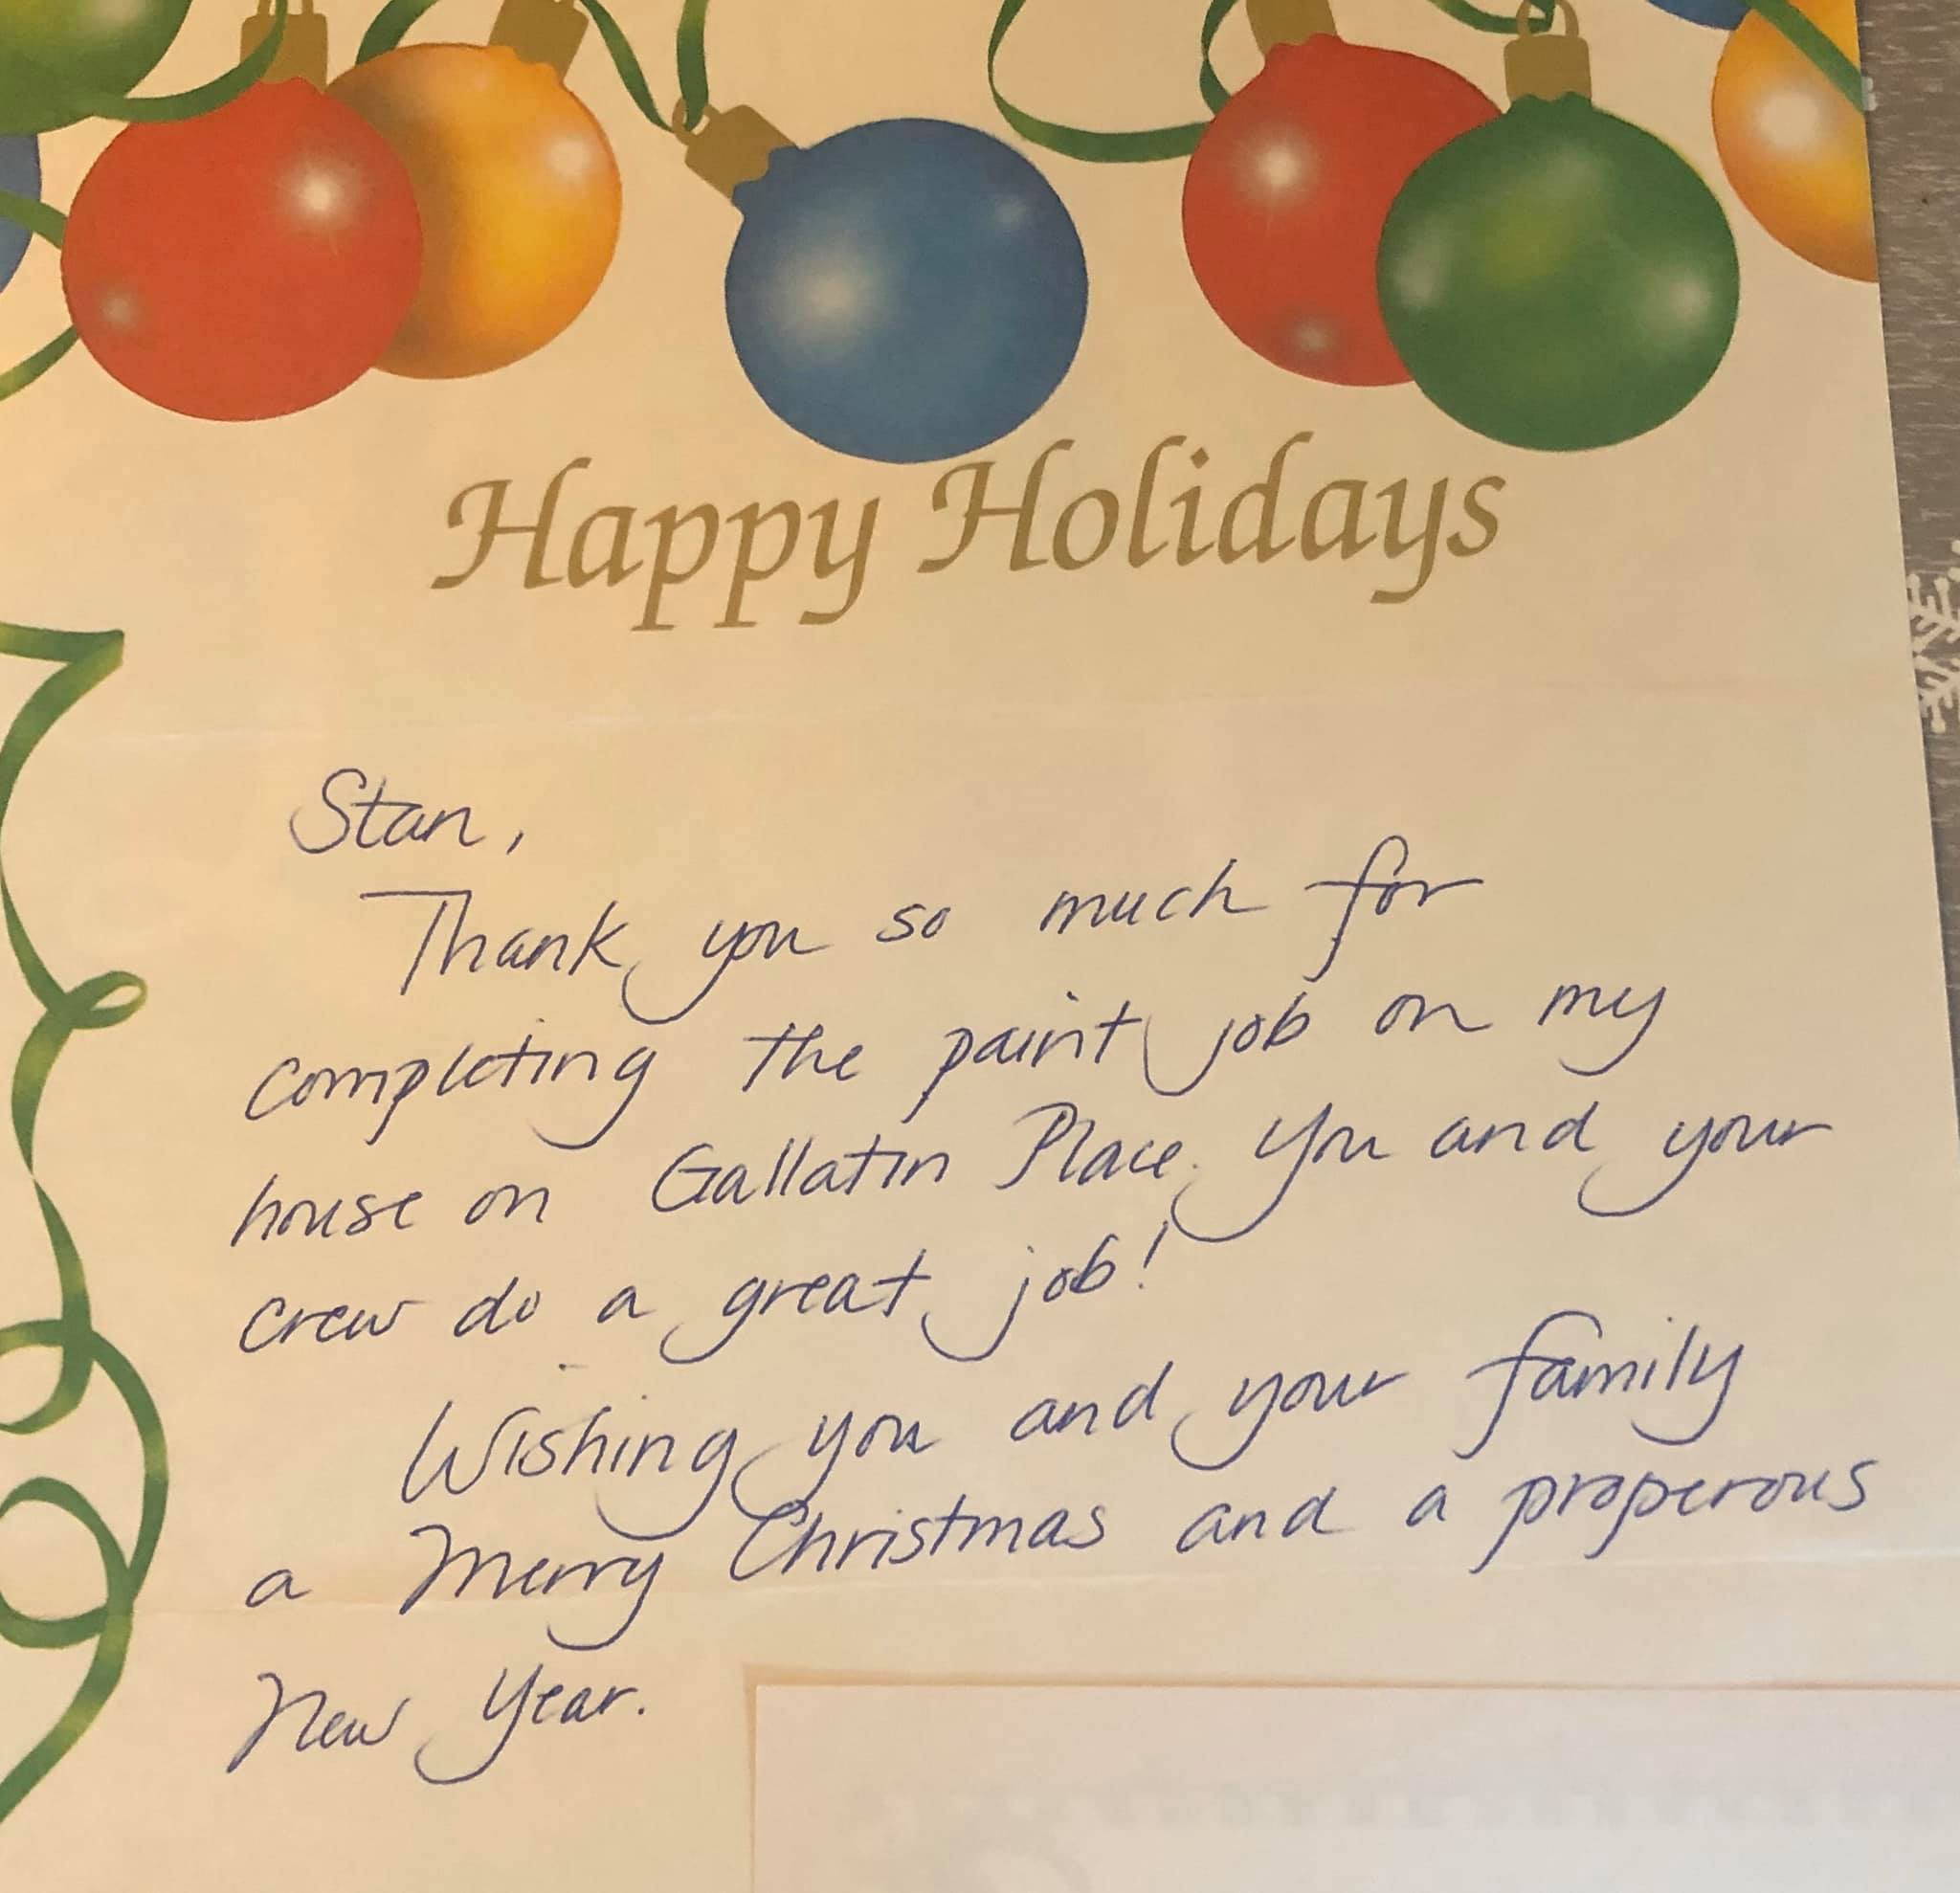 Happy Holidays
Stan,
Thank you so much for
completing the paint job on my
house on Gallatin Place. You and your
crew do a great job!
Wishing you and your family
a Merry Christmas and a properous
New Year.